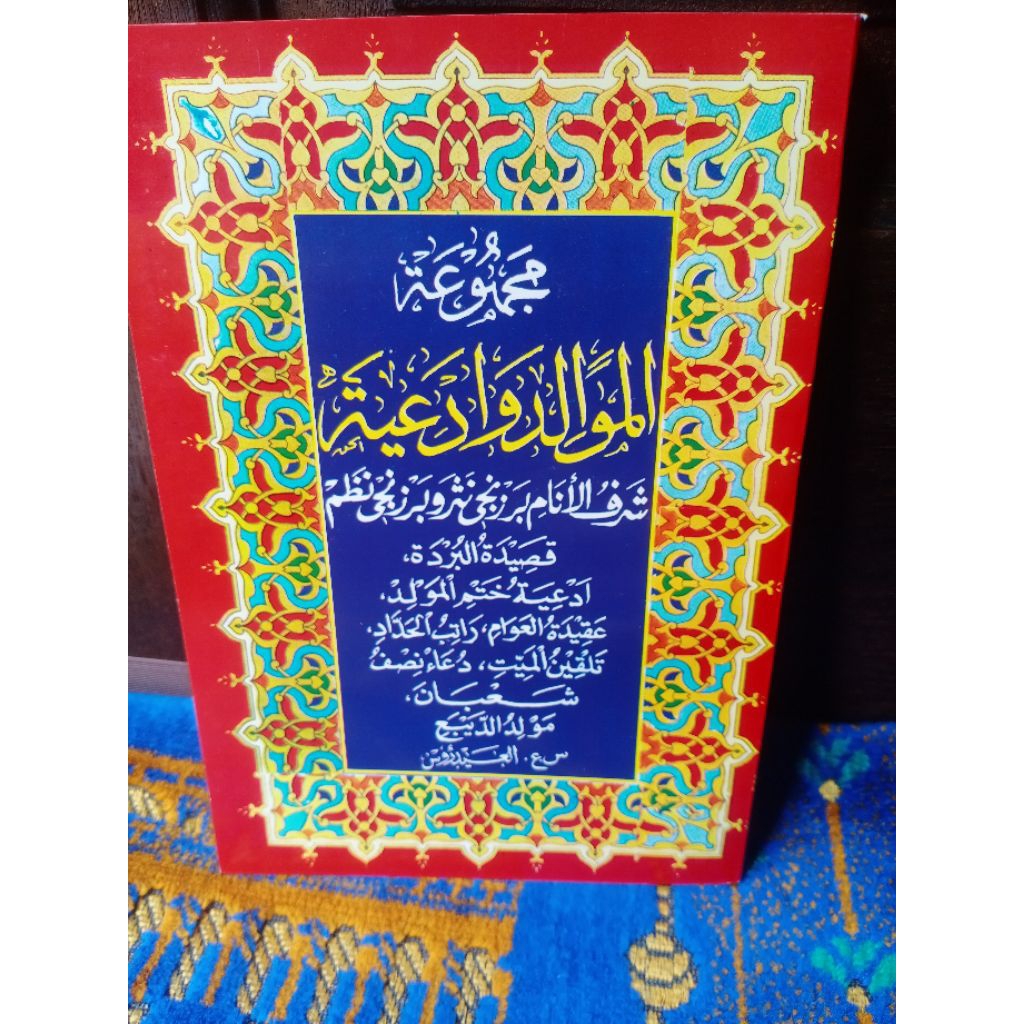 مَجْمُوْعَة
المَوَالِد وَادْعِيَة
شَرَفُ الأَنَامِ بَرْزَنْجِى نَثَر وَبَرْزَنْجِى نَظَمْ
قَصِيْدَةُ البُرْدَة،
اَدْعِيَة خَتْمِ المَوَلِدْ،
عَقِيْدَةُ العَوَامِ، رَاتِبُ الحَدَّادِ،
تَلْقِيْنُ المَيِّتِ، دُعَاءْ نِصْفُ
شَعْبَانَ،
مَوْلِدُ الدَّيْبَعِ
س.ع. العَيْدَرُوْس